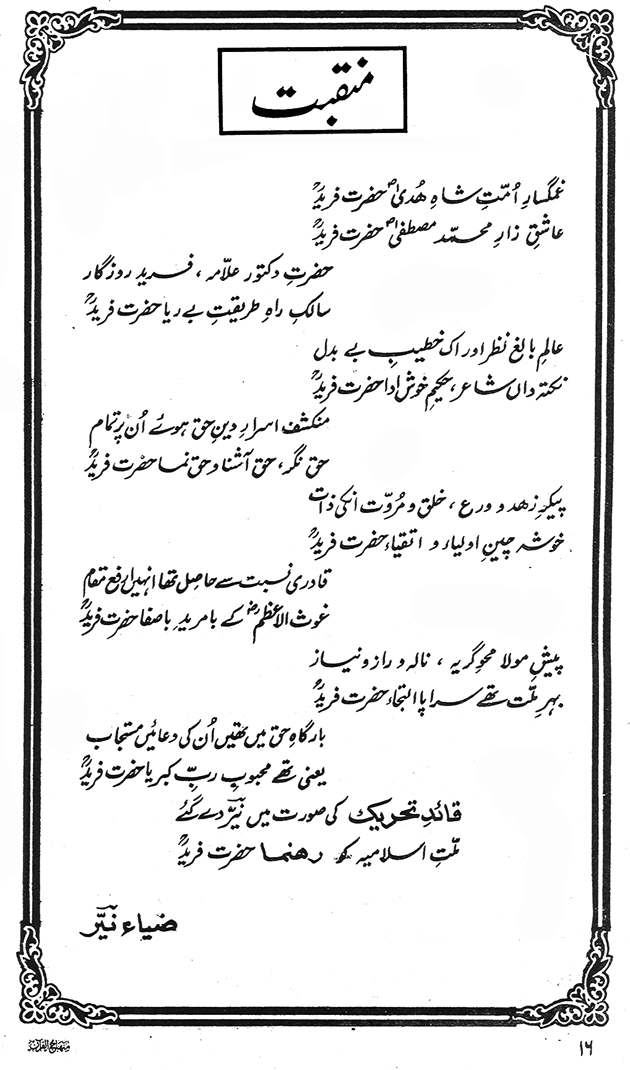 منقبت
غمگسارِ اُمّتِ شاہِ ھُدیٰ ؐ حضرت فریدؒ
عاشقِ زارِ محمّد مصطفیٰ ؐ حضرت فریدؒ
حضرتِ دکتور علّامہ ، فریدِ روزگار
سالکِ راہِ طریقیت بے ریا حضرت فریدؒ
عالمِ بالغ نظر اور اک خطیبِ بے بدل
نکتہ داں شاعر ، حکیمِ خوش ادا حضرت فریدؒ
منکشف اسرارِ دینِ حق ہوئے اُن پر تمام
حق نگر ، حق آشنا و حق نما حضرت فریدؒ
پیکرِ زھد و ورع ، خلق و مُروّت انکی ذات
خوشہ چینِ اولیاء و اتقیاء حضرت فریدؒ
قادری نسبت سے حاصِل تھا انہیں ارفع مقام
غوث الاعظمؓ کے بامریدِ باصفا حضرت فریدؒ
پیشِ مولا محوِ گریہ ، نالہ و راز و نیاز
بہرِ ملّت تھے سراپا التجاء حضرت فریدؒ
بارگاہِ حق میں تھیں اُن کی دعائیں مستجاب
یعنی تھے محبوبِ ربِّ کبریا حضرت فریدؒ
قائدِ تحریک کی صورت میں نیّرؔ دے گئے
ملّتِ اسلامیہ کو رھنما حضرت فریدؒ
ضیاء نیّرؔ
منہاج القرآن
١٦